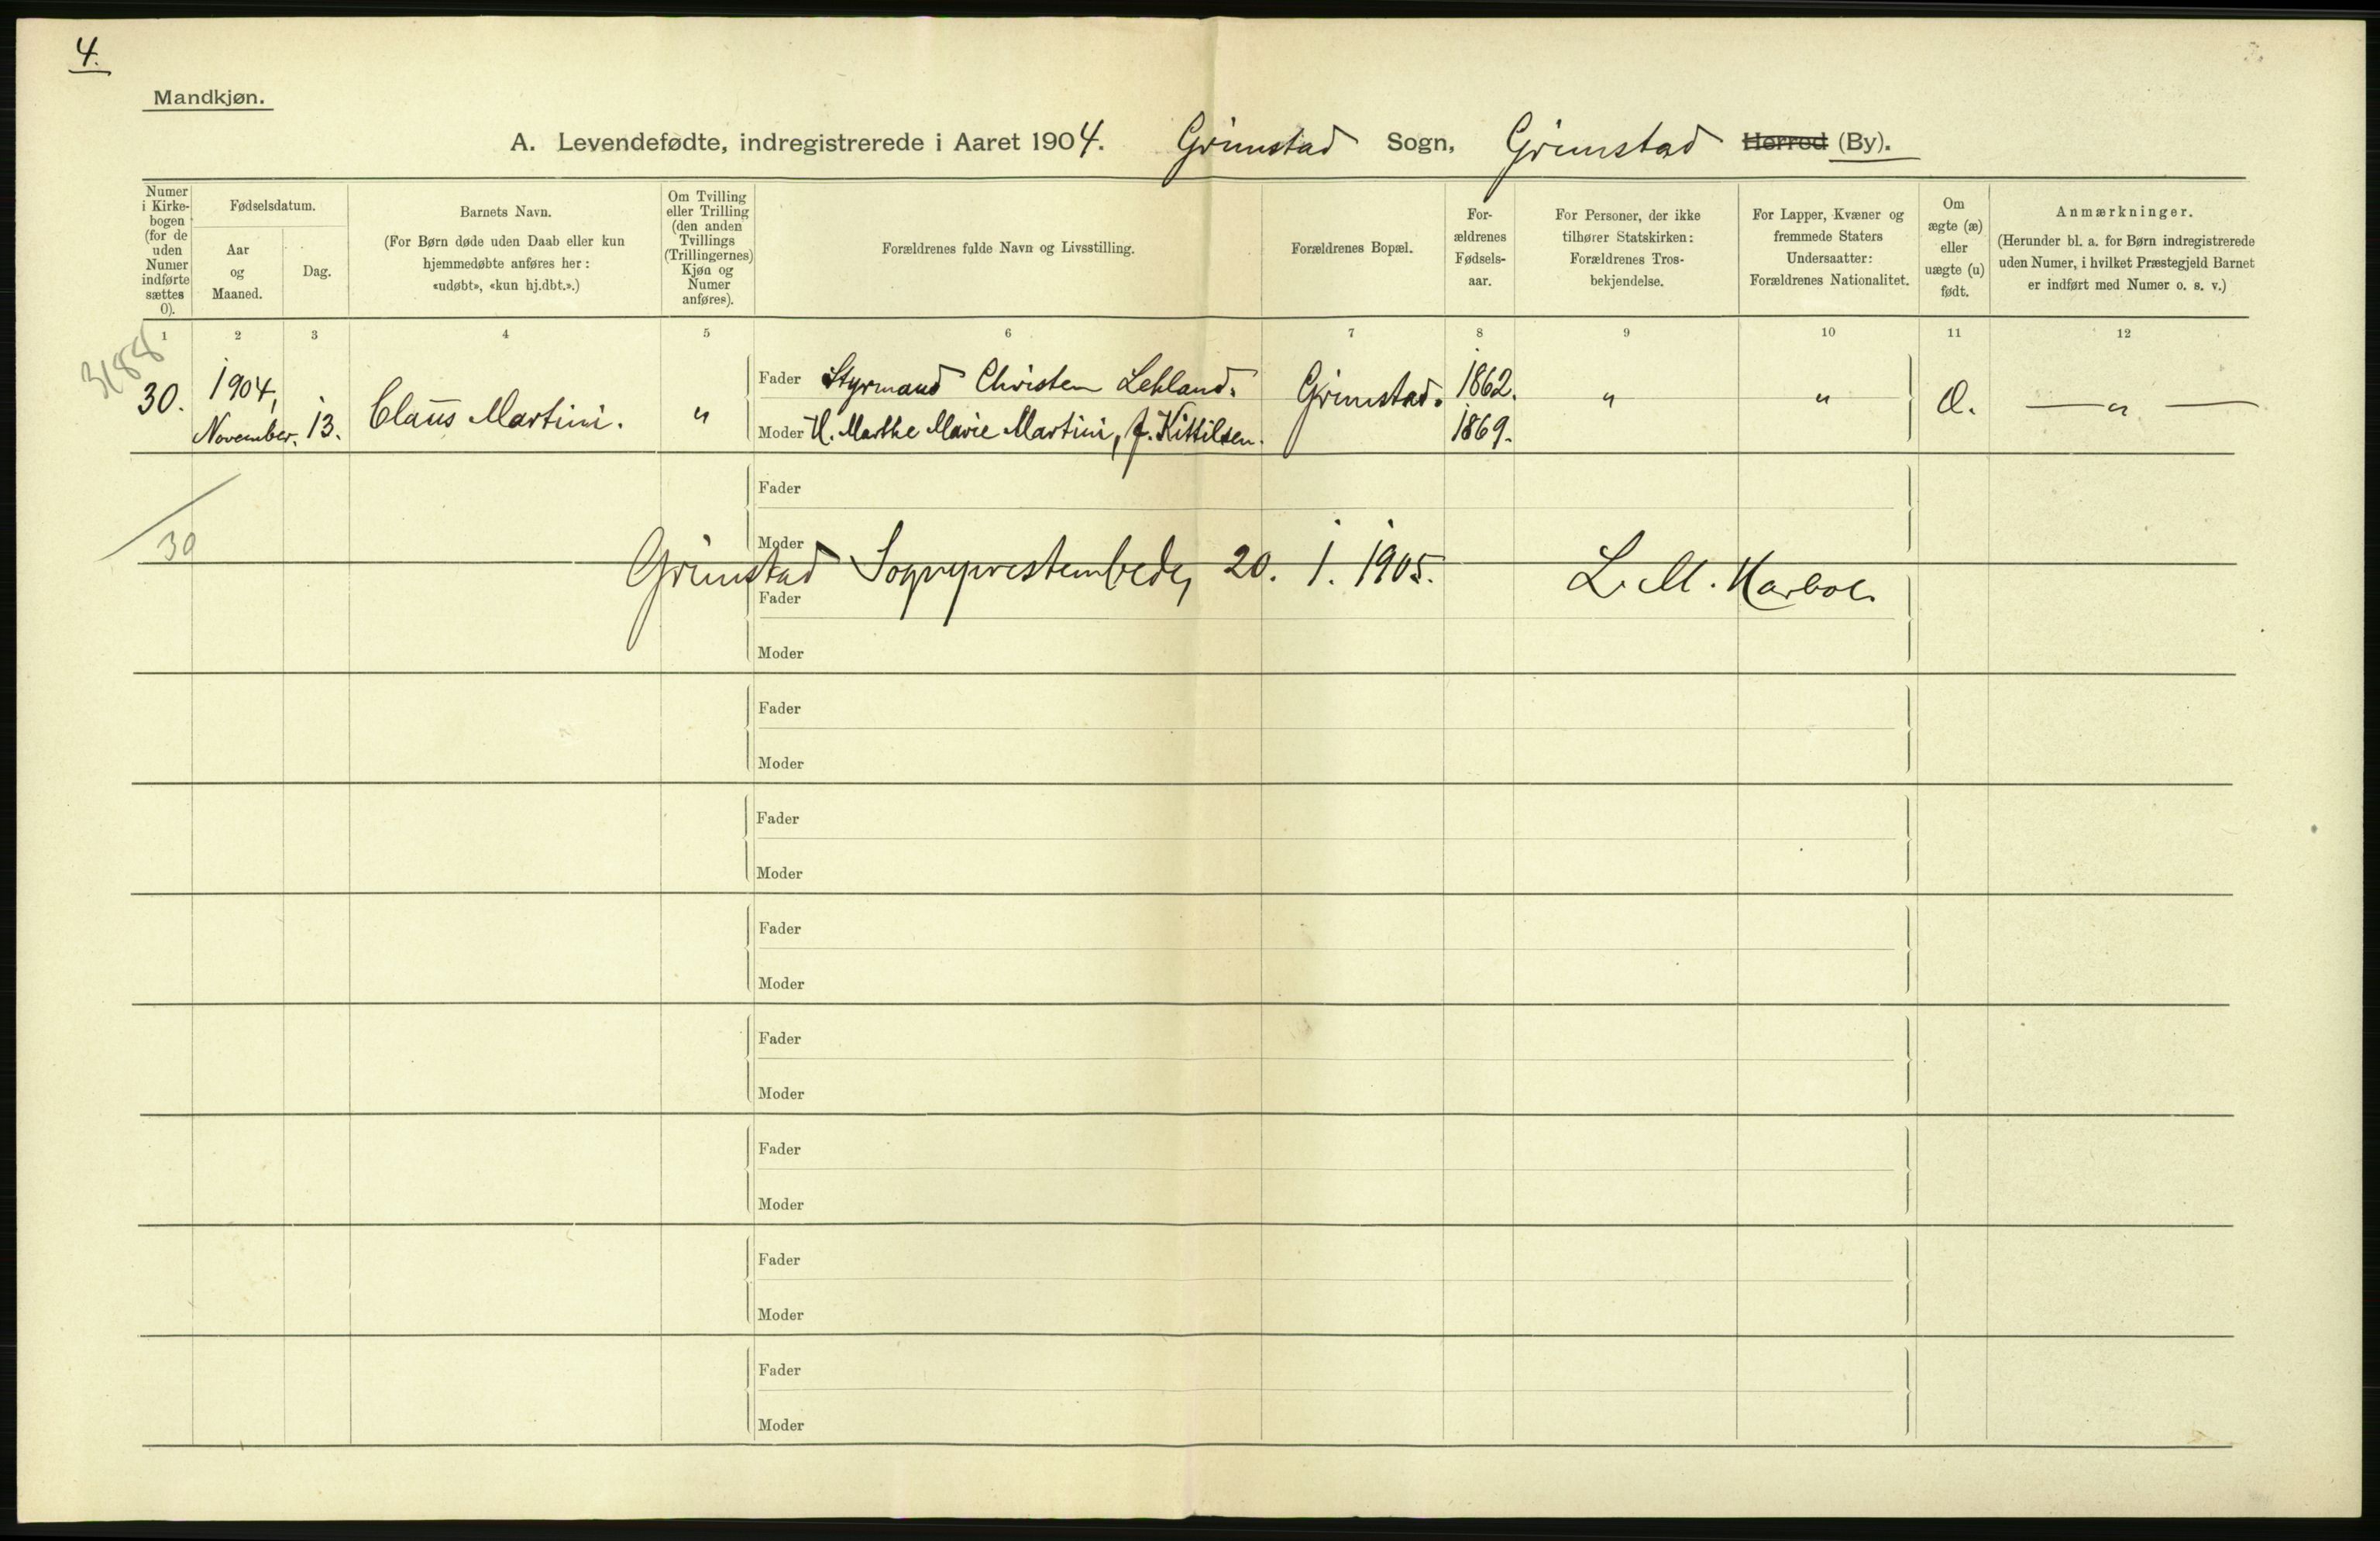 4.
Mandkjøn.
A. Levendefødte, indregistrerede i Aaret 1904. Grimstad Sogn, Grimstad Herred (By).
Numer i Kirkebogen (for de uden Numer indførte sættes 0).
Fødselsdatum.
Aar og Maaned.
Dag.
Barnets Navn.
(For Børn døde uden Daab eller kun
hjemmedøbte anføres her:
«udøbt», «kun hj.dbt.».)
Om Tvilling
eller Trilling
(den anden
Tvillings
(Trillingernes)
Kjøn og
Numer
anføres).
Forældrenes fulde Navn og Livsstilling.
Forældrenes Bopæl.
For-
ældrenes
Fødsels-
aar.
For Personer, der ikke
tilhører Statskirken:
Forældrenes Tros-
bekjendelse.
For Lapper, Kvæner og
fremmede Staters
Undersaatter:
Forældrenes Nationalitet.
Om
ægte (æ)
eller
uægte (u)
født.
Anmærkninger.
(Herunder bl. a. for Børn indregistrerede
uden Numer, i hvilket Præstegjeld Barnet
er indført med Numer o. s. v.)
1 2 3 4 5 6 7 8 9 10 11 12
3188
30. 1904, November. 13. Claus Martini. "
Fader Styrmand Christen Lehland. Grimstad. 1862. " "
— " —
Moder H. Marthe Marie Martini, f. Kittilsen. 1869.
Fader
30
Moder
Grimstad Sogneprestembede, 20. 1. 1905. L. M.
Fader
Moder
Fader
Moder
Fader
Moder
Fader
Moder
Fader
Moder
Fader
Moder
Fader
Moder
Fader
Moder